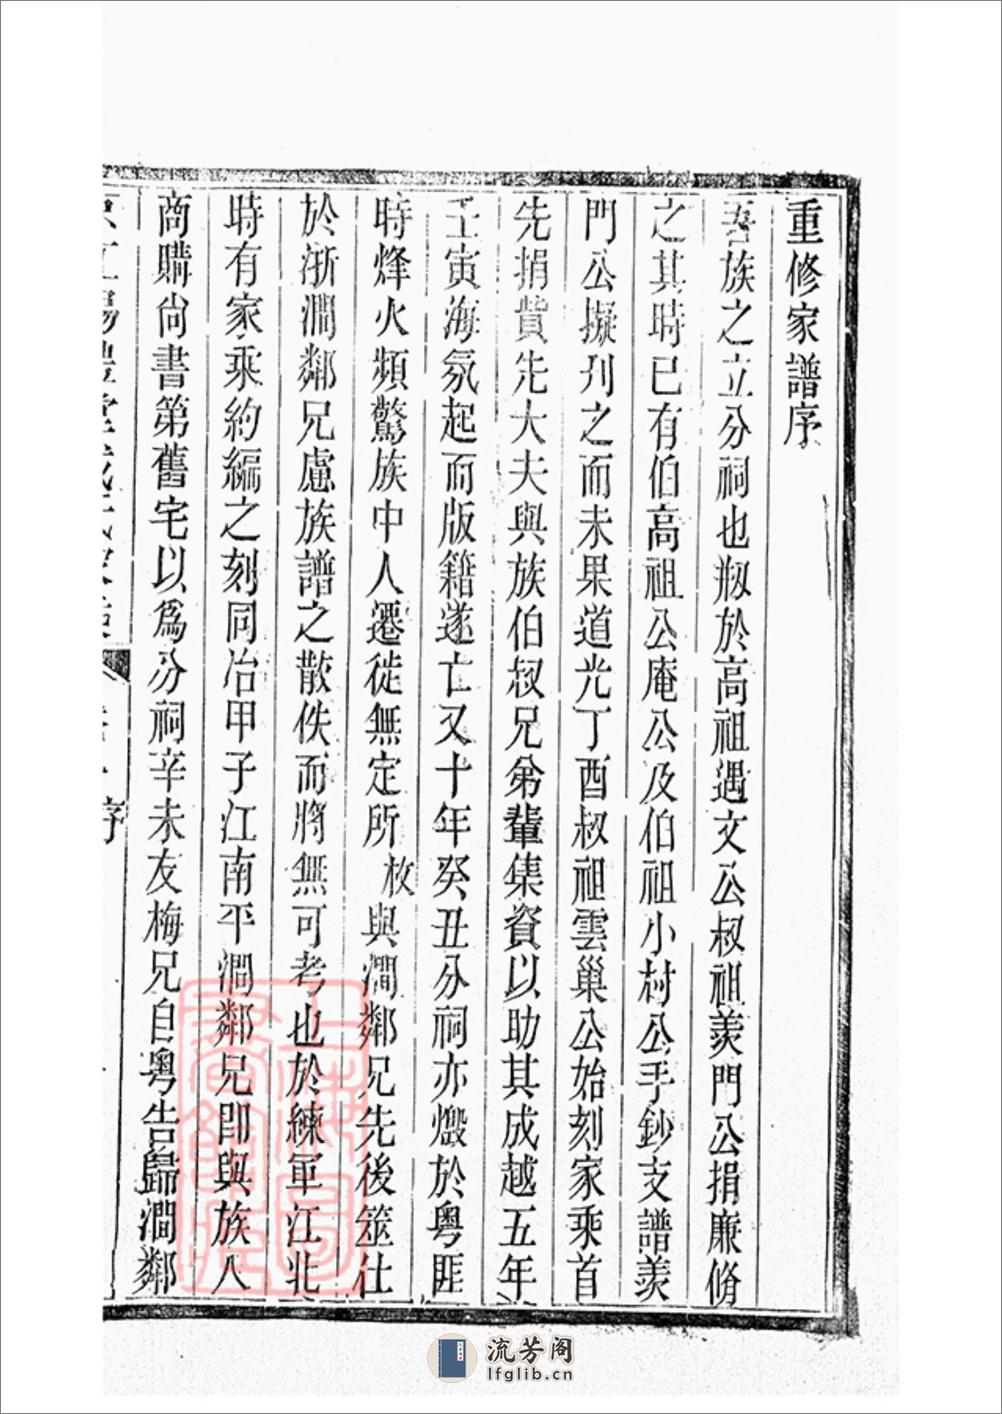 重修家譜序
吾族之立分祠也剏於高祖遇文公叔祖羨門公捐廉脩
之其時已有伯高祖公庵公及伯祖小村公手鈔支譜羨
門公擬刋之而未果道光丁酉叔祖雲巢公始刻家乘首
先捐貲先大夫與族伯叔兄弟輩集資以助其成越五年
壬寅海氛起而版籍遂亡又十年癸丑分祠亦燬於粵匪
時烽火頻驚族中人遷徙無定所枚與澗鄰兄先後筮仕
於浙澗鄰兄慮族譜之散佚而將無可考也於練軍江北
時有家乘約編之刻同治甲子江南平澗鄰兄卽與族人
商購尙書第舊宅以爲分祠辛未友梅兄自粵告歸澗鄰
序
上海圖書館藏
流芳阁
lfglib.cn